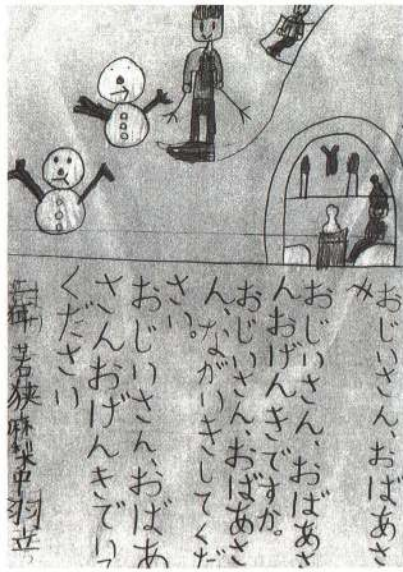 おじいさん、おばあさ
んへ
おじいさん、おばあさ
んおげんきですか。
おじいさん、おばあさ
ん、ながいきしてくだ
さい。
おじいさん、おばあ
さんおげんきでいて
ください
若狭麻